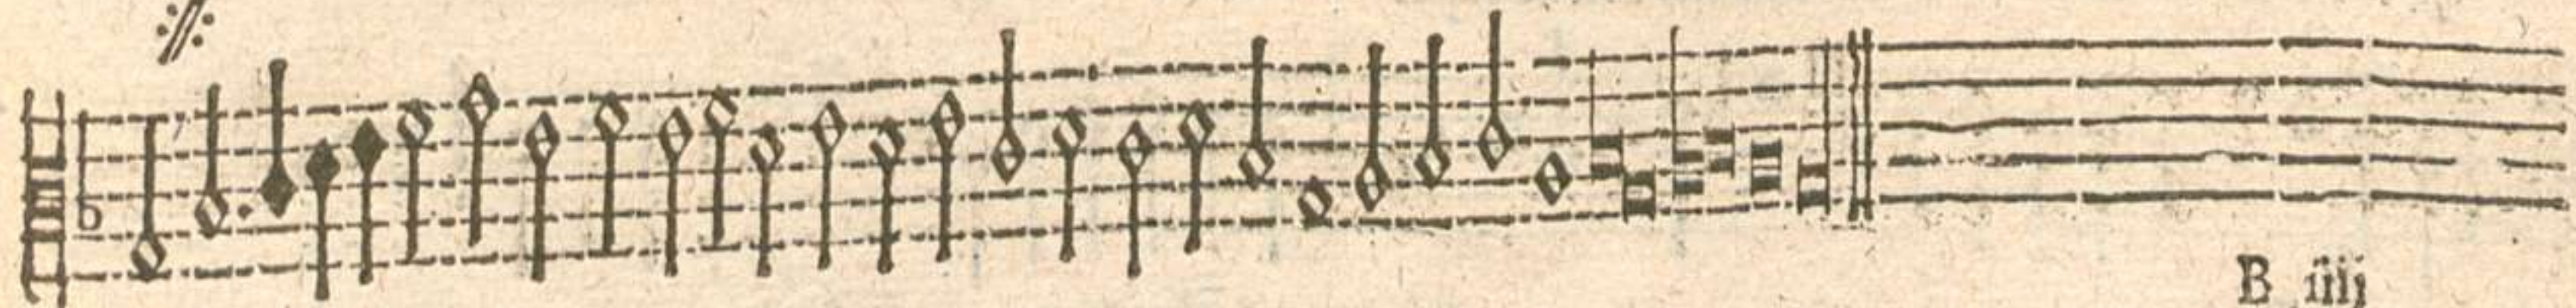 B iiij